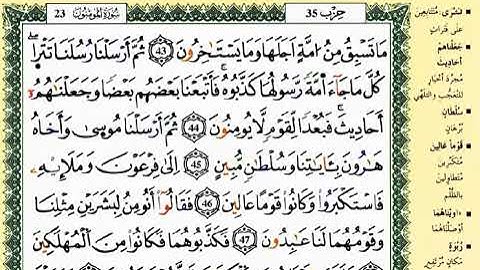 سُورَةُ المُؤْمِنُونَ 23
حِزب 35
مَا تَسْبِقُ مِنْ أُمَّةٍ أَجَلَهَا وَمَا يَسْتَـْٔخِرُونَ 43 ثُمَّ أَرْسَلْنَا رُسُلَنَا تَتْرَا
كُلَّ مَا جَآءَ أُمَّةً رَّسُولُهَا كَذَّبُوهُ فَأَتْبَعْنَا بَعْضَهُم بَعْضًا وَجَعَلْنَٰهُمْ
أَحَادِيثَ فَبُعْدًا لِّقَوْمٍ لَّا يُؤْمِنُونَ 44 ثُمَّ أَرْسَلْنَا مُوسَىٰ وَأَخَاهُ
هَٰرُونَ بِـَٔايَٰتِنَا وَسُلْطَٰنٍ مُّبِينٍ 45 إِلَىٰ فِرْعَوْنَ وَمَلَإِيْهِ
فَاسْتَكْبَرُوا وَكَانُوا قَوْمًا عَالِينَ 46 فَقَالُوا أَنُؤْمِنُ لِبَشَرَيْنِ مِثْلِنَا
وَقَوْمُهُمَا لَنَا عَٰبِدُونَ 47 فَكَذَّبُوهُمَا فَكَانُوا مِنَ الْمُهْلَكِينَ
تَتْرَى: مُتَتَابِعِينَ
عَلَى فَتَرَاتٍ
جَعَلْنَاهُمْ
أَحَادِيثَ
مُجَرَّدَ أَخْبَارٍ
لِلتَّعَجُّبِ وَالتَّلَهِّي
سُلْطَانٍ
بُرْهَانٍ
قَوْماً عَالِينَ
مُتَكَبِّرِينَ
مُتَطَاوِلِينَ
بِالظُّلْمِ
أَوْصَلْنَاهُمَا
رَبْوَةٍ
مَكَانٍ مُرْتَفِعٍ